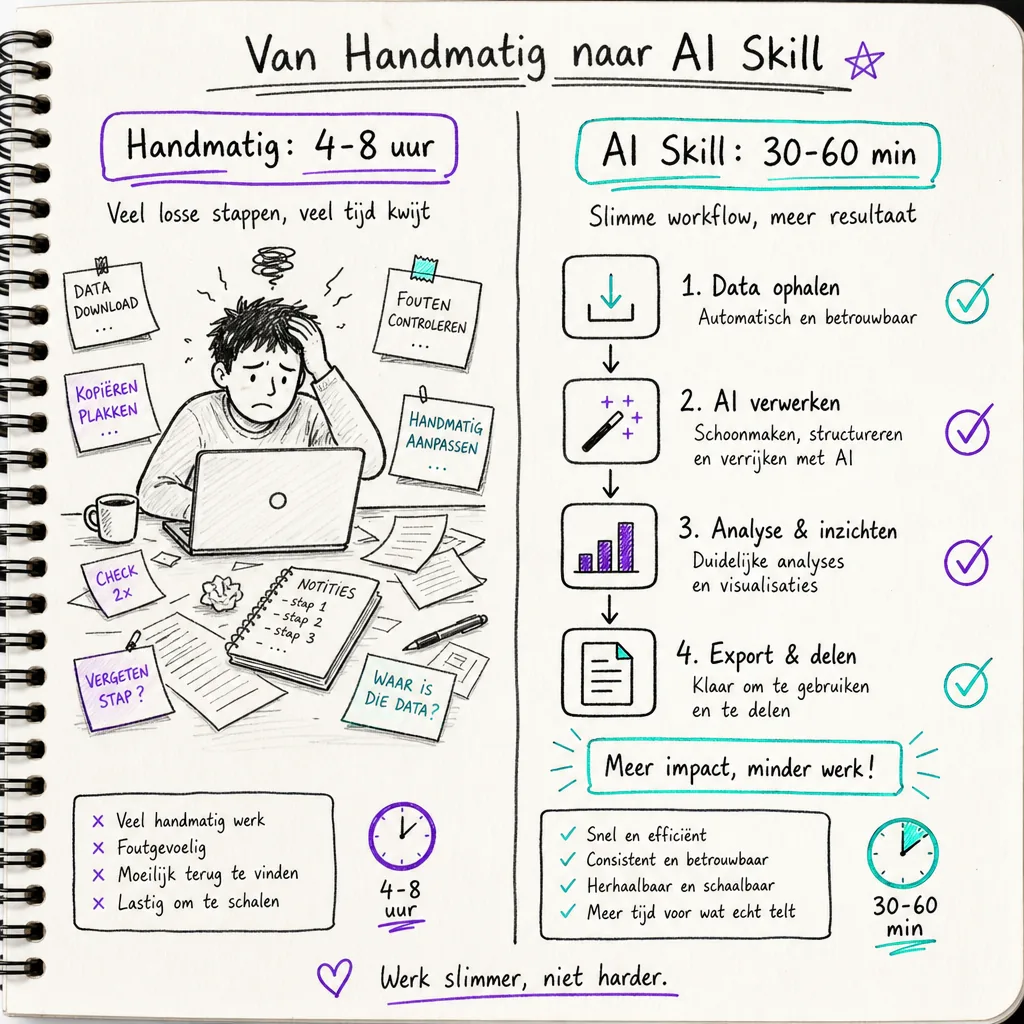 Van Handmatig naar AI Skill
Handmatig: 4-8 uur
Veel losse stappen, veel tijd kwijt
DATA
DOWNLOAD
...
FOUTEN
CONTROLEREN
...
KOPIËREN
PLAKKEN
...
HANDMATIG
AANPASSEN
...
CHECK
2x
NOTITIES
- stap 1
- stap 2
- stap 3
...
VERGETEN
STAP?
WAAR IS
DIE DATA?
x Veel handmatig werk
x Foutgevoelig
x Moeilijk terug te vinden
x Lastig om te schalen
4-8
uur
AI Skill: 30-60 min
Slimme workflow, meer resultaat
1. Data ophalen
Automatisch en betrouwbaar
2. AI verwerken
Schoonmaken, structureren
en verrijken met AI
3. Analyse & inzichten
Duidelijke analyses
en visualisaties
4. Export & delen
Klaar om te gebruiken
en te delen
Meer impact, minder werk!
✓ Snel en efficiënt
✓ Consistent en betrouwbaar
✓ Herhaalbaar en schaalbaar
✓ Meer tijd voor wat echt telt
30-60
min
Werk slimmer, niet harder.